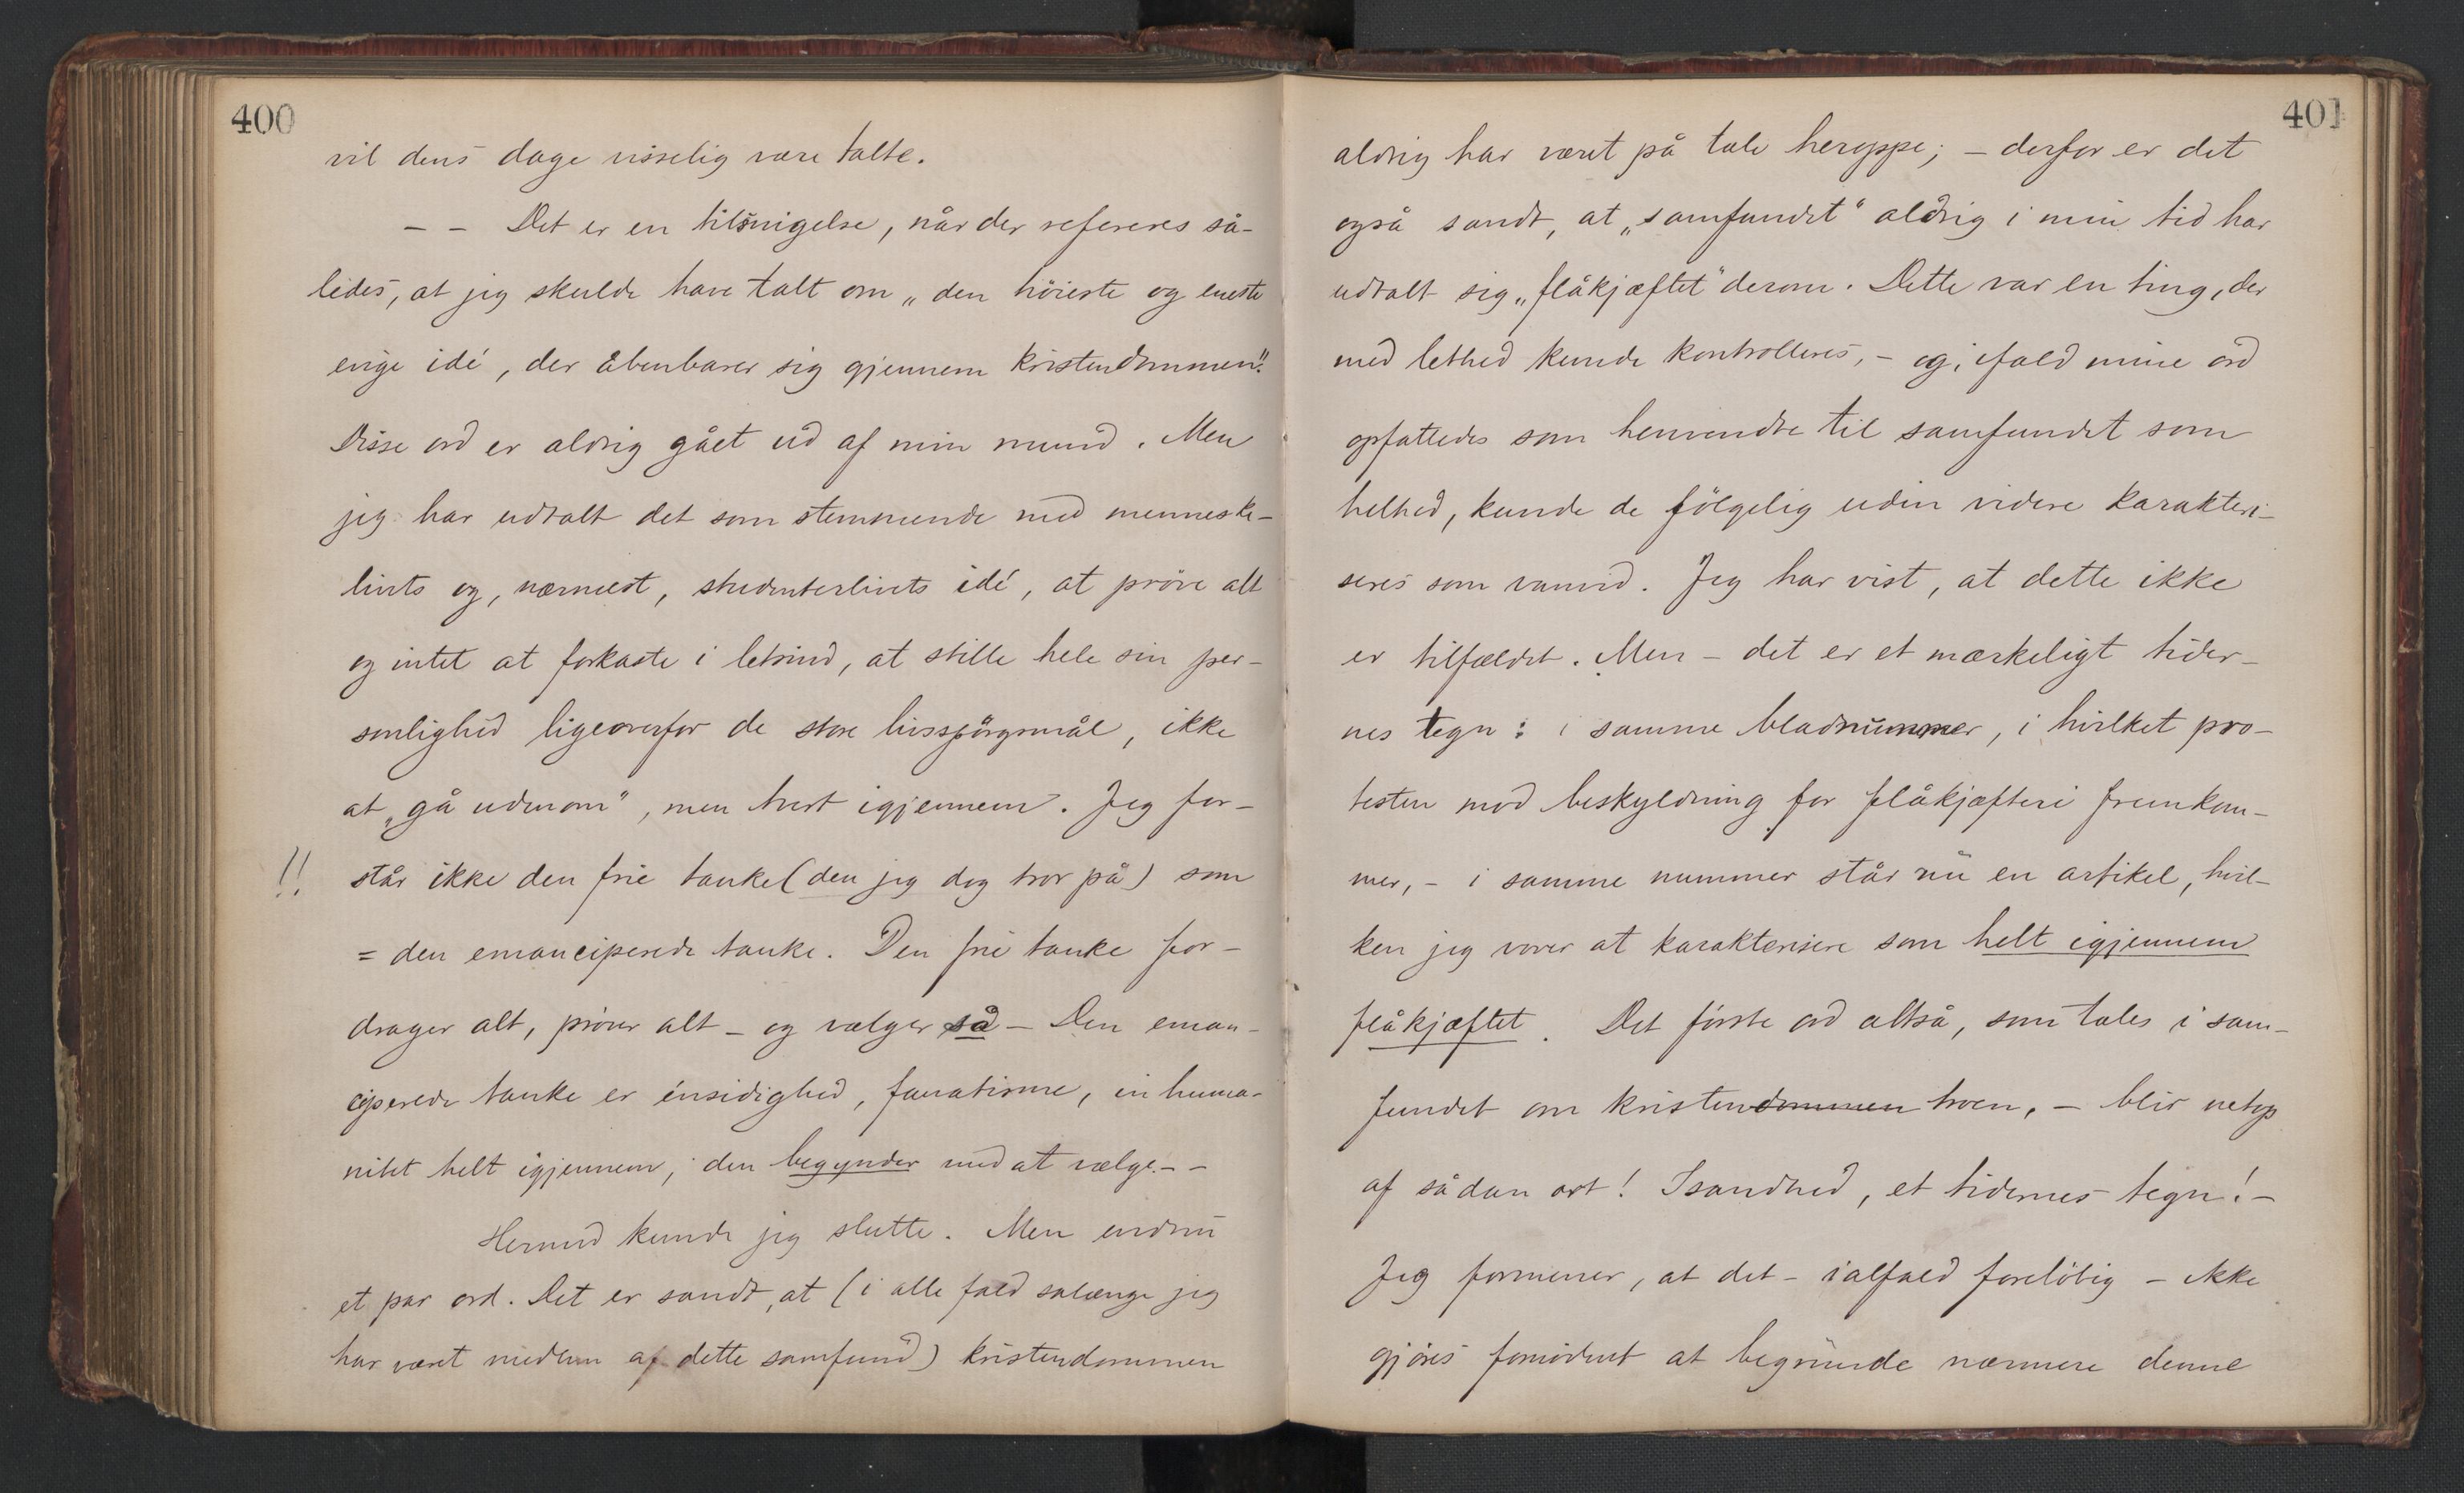 400
vil dens dage visselig være talte.
– – Det er en tilsnigelse, når der refereres så-
ledes, at jeg skulde have talt om „den höieste og eneste
evige idé, der åbenbarer sig gjennem kristendommen".
Disse ord er aldrig gået ud af min mund. Men
jeg har udtalt det som stemmende med menneske-
livets og, nærmest, studenterlivets idé, at pröve alt
og intet at forkaste i letsind, at stille hele sin per-
sonlighed ligeoverfor de store livsspörgsmål, ikke
at „gå udenom", men tvert igjennem. Jeg for-
!! står ikke den frie tanke (den jeg dog tror på) som
= den emanciperede tanke. Den frie tanke for-
drager alt, pröver alt – og vælger så – Den eman-
ciperede tanke er énsidighed, fanatisme, inhuma-
nitet helt igjennem; den begynder med at vælge. – –
Hermed kunde jeg slutte. Men endnu
et par ord. Det er sandt, at (i alle fald salænge jeg
har været medlem af dette samfund) kristendommen
401
aldrig har været på tale heroppe; – derfor er det
også sandt, at „samfundet" aldrig i min tid har
udtalt sig „flåkjæftet" derom. Dette var en ting, der
med lethed kunde kontrolleres, – og, ifald mine ord
opfattedes som henvendte til samfundet som
helhed, kunde de fölgelig uden videre karakteri-
seres som vanvid. Jeg har vist, at dette ikke
er tilfældet. Men – det er et mærkeligt tider-
nes tegn: i samme bladnummer, i hvilket pro-
testen mod beskyldning for flåkjæfteri fremkom-
mer, – i samme nummer står nu en artikel, hvil-
ken jeg vover at karakterisere som helt igjennem
flåkjæftet. Det förste ord altså, som tales i sam-
fundet om kristendommen troen, – blir netop
af sådan art! Isandhed, et tidernes tegn! –
Jeg formener, at det – ialfald forelöbig – ikke
gjöres fornödent at begrunde nærmere denne